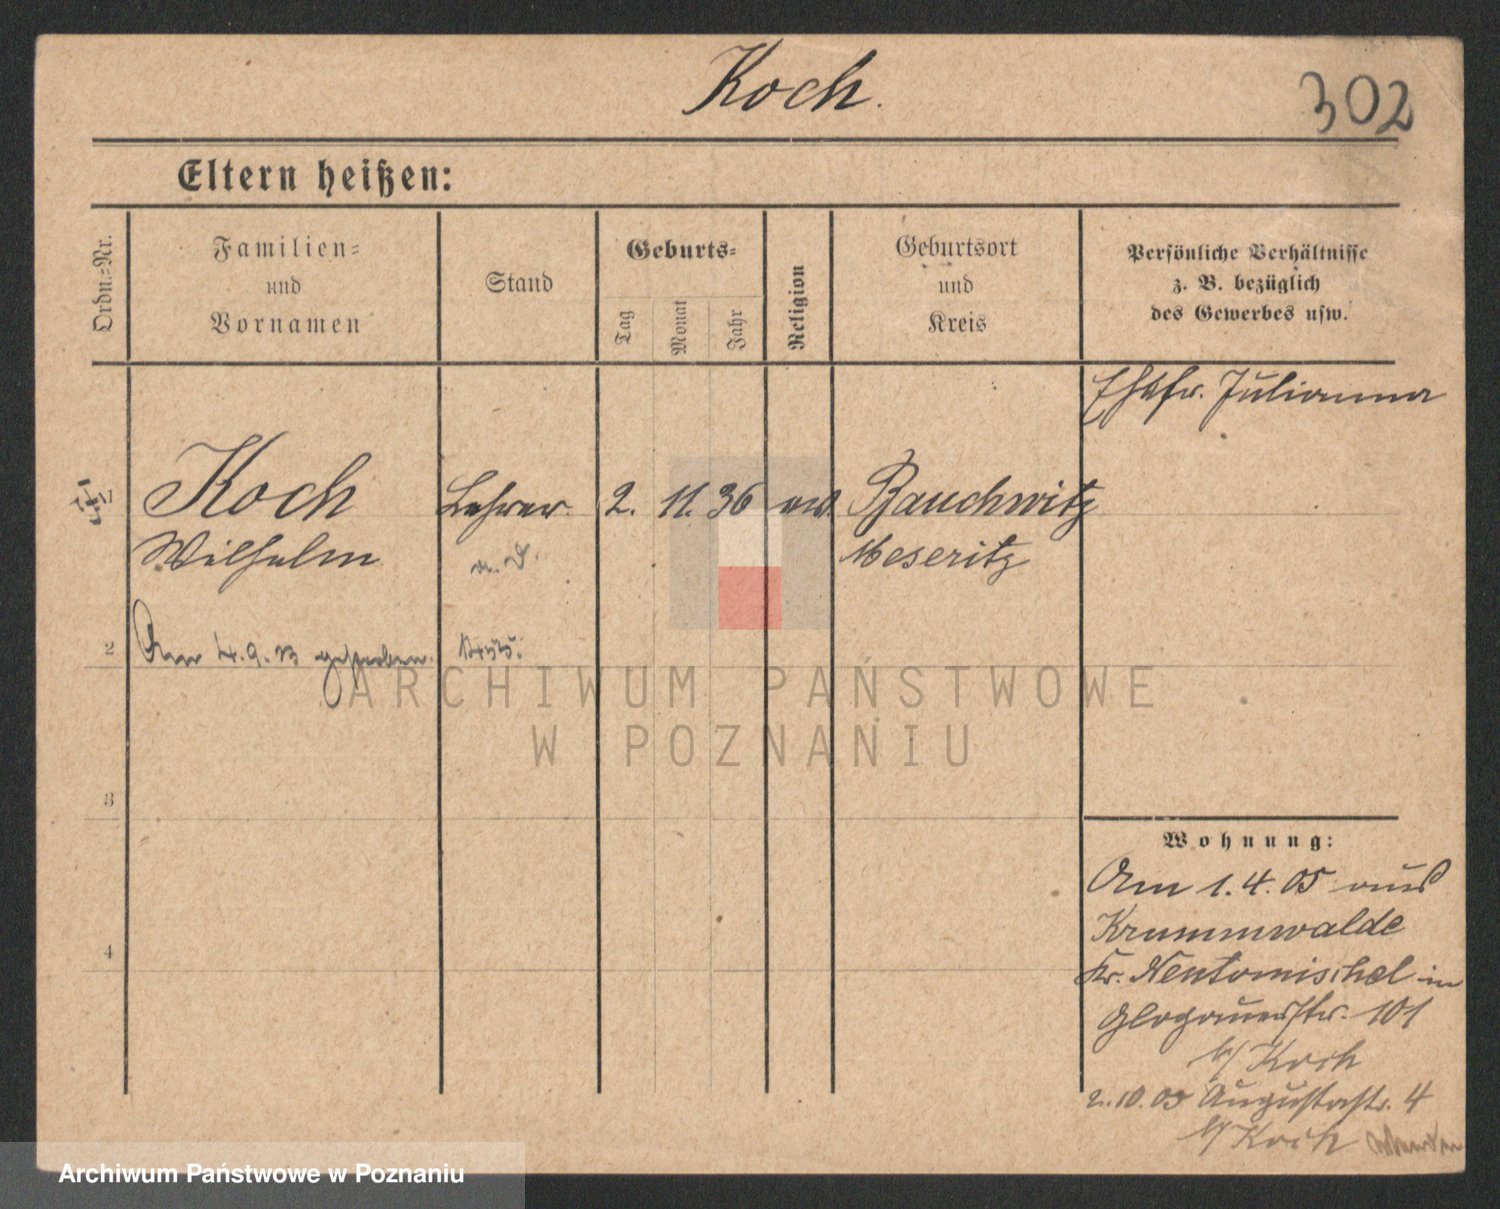 Koch.
302
Eltern heißen:
Ordn.=Nr.
Familien=
und
Vornamen
Stand
Geburts=
Tag
Monat
Jahr
Religion
Geburtsort
und
Kreis
Persönliche Verhältnisse
z. B. bezüglich
des Gewerbes usw.
Julianna
1
Koch
Lehrer
2. 11. 36
Bauchwitz
Wilhelm
a. D.
Meseritz
2
Am 4.9. gestorben.
3
4
Wohnung:
Am 1.4.05 aus
Krummwalde
Kr. Neutomischel in
Glogauerstr. 101
b/ Koch
2.10.05 Augustastr. 4
b/ Koch
ARCHIWUM PAŃSTWOWE
W POZNANIU
Archiwum Państwowe w Poznaniu